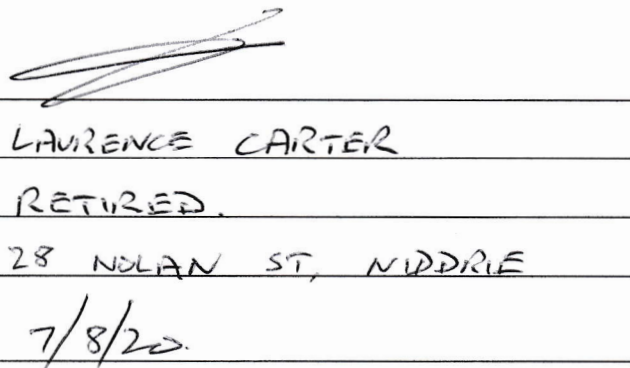 LAURENCE CARTER
RETIRED.
28 NOLAN ST, NIDDRIE
7/8/20